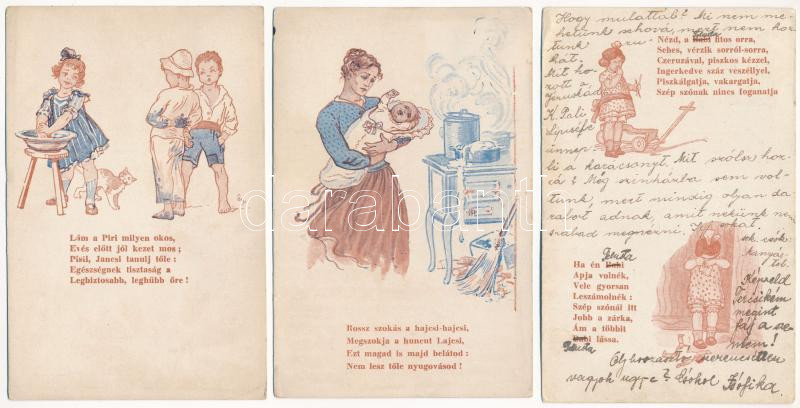 Lám a Piri milyen okos,
Evés előtt jól kezet mos;
Pisti, Jancsi tanulj tőle:
Egészségnek tisztaság a
Legbiztosabb, leghübb őre!
Rossz szokás a hajcsi-hajcsi,
Megszokja a huncut Lajcsi,
Ezt magad is majd belátod:
Nem lesz tőle nyugovásod!
Hogy mulattál? Mi nem me-
hetünk sehová, mert nem hoz-
tunk ru-
hát.
Mit ho-
zott a
Jézuskád
K. Pali
ünnep-
li a karácsonyt. Mit szólsz hoz-
zá? Még szinházba sem vol-
tunk, mert mindig olyan da-
rabot adnak, amit nekünk nem
szabad megnézni.
Nézd, a Babi fitos orra,
Sebes, vérzik sorról-sorra,
Czeruzával, piszkos kézzel,
Ingerkedve száz veszéllyel,
Piszkálgatja, vakargatja,
Szép szónak nincs foganatja
Ha én Babi
Apja volnék,
Vele gyorsan
Leszámolnék:
Szép szónál itt
Jobb a zárka,
Ám a többit
Babi lássa.
Képzeld
Tercsikém
megint
fáj a sze-
mem!
Oly bosszantó, szerencsétlen
vagyok ugy-e? Csókol Zsófika.
darabanth